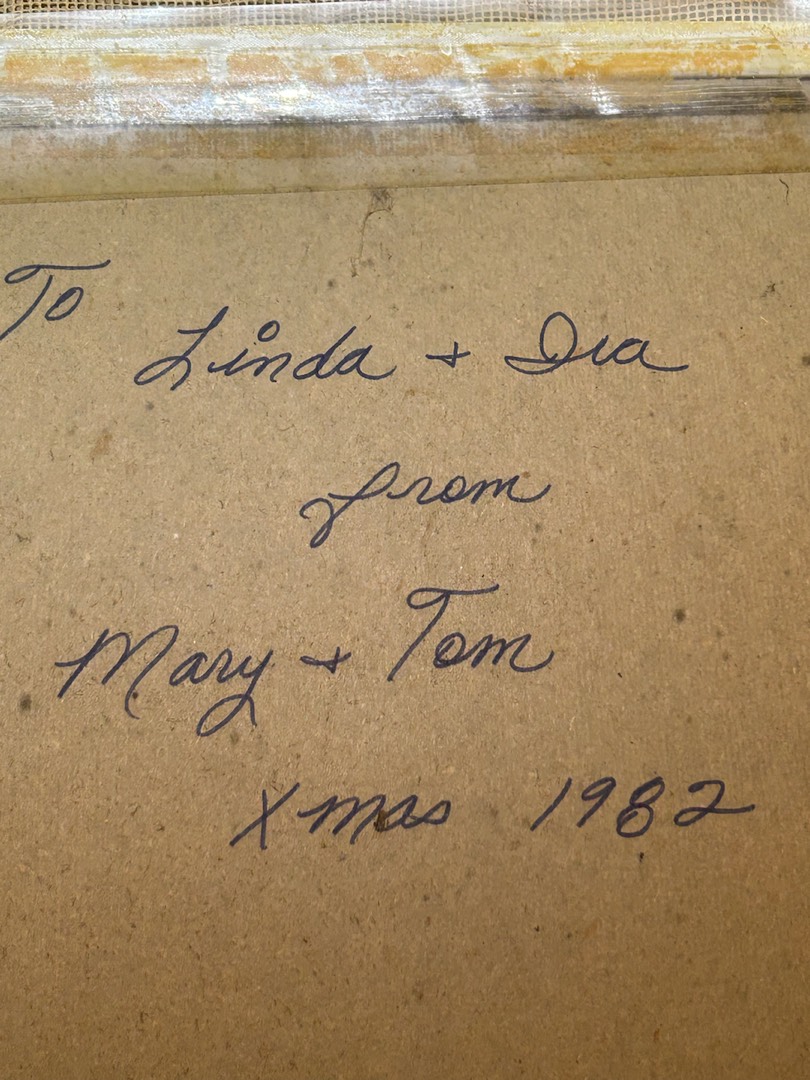 To
Linda + Ira
from
Mary + Tom
Xmas 1982